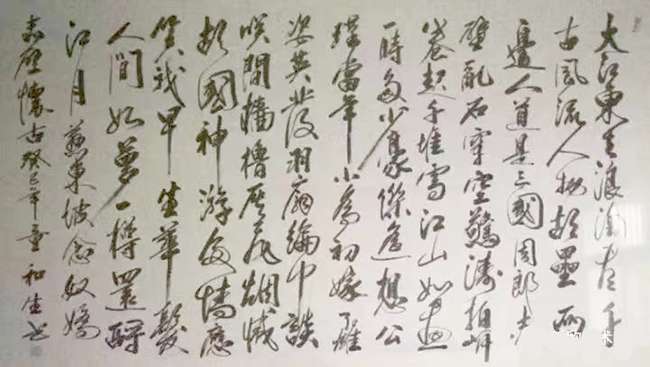 大江東去浪淘尽千
古風流人物故壘西
邊人道是三國周郎赤
壁亂石穿空驚濤拍岸
卷起千堆雪江山如畫
一時多少豪傑遙想公
瑾當年小喬初嫁了雄
姿英發羽扇綸巾談
笑間檣櫓灰飛煙滅
故國神游多情應
笑我早生華髮
人間如夢一樽還酹
江月蘇東坡念奴嬌
赤壁懷古癸巳年和生书